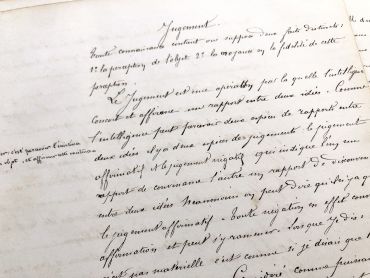 Jugement
Toute connaissance contient ou suppose deux faits distincts:
1º la perception de l'objet 2º la croyance en la fidélité de cette
perception.
Le Jugement est une opération par la quelle l'intelligence
conçoit et affirme un rapport entre deux idées. Comme
l'intelligence peut percevoir deux espèces de rapports entre
deux idées il y a deux espèces de jugement le jugement
affirmatif et le jugement négatif qui indique l'un un
rapport de convenance l'autre un rapport de disconve
entre deux idées Néanmoins on peut dire qu'il n'y a que
le jugement affirmatif. Toute négation en effet con
affirmation et peut s'y ramener. Lorsque je dis:
n'est pas matérielle c'est comme si je disais que l
Considéré comme puissan